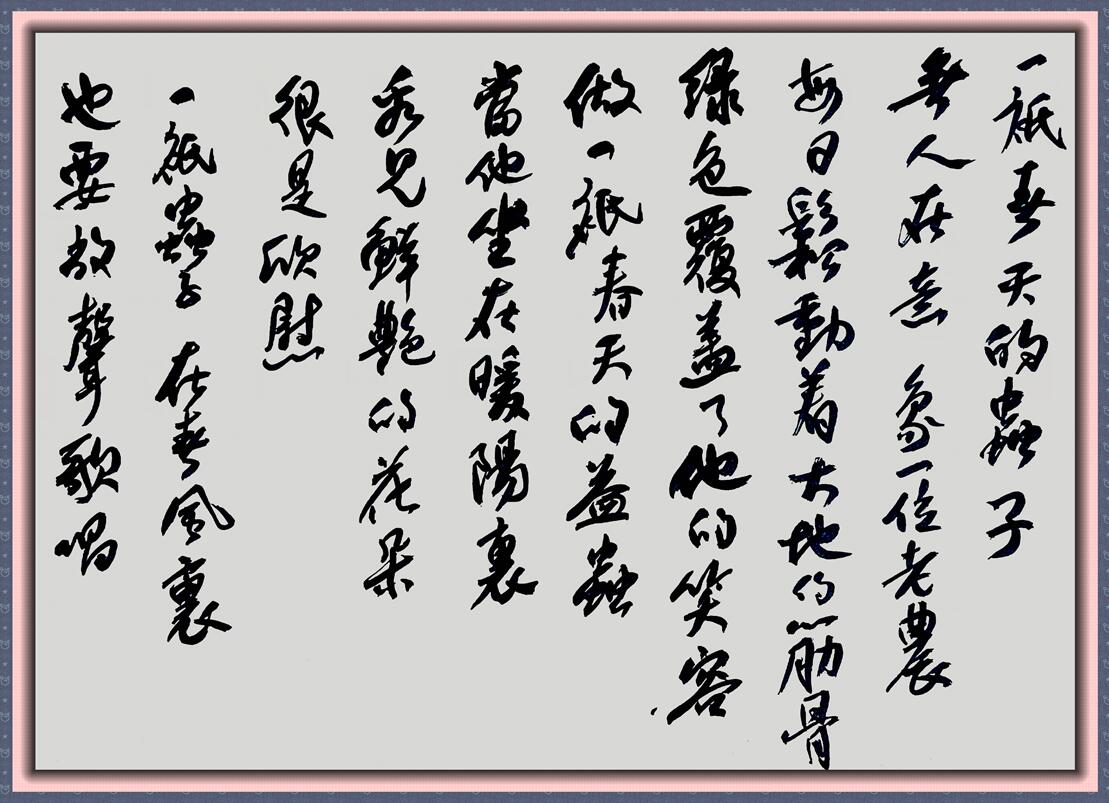 一袛春天的蟲子
無人在意 象一位老農
每日鬆動着大地的筋骨
緑色覆盖了他的笑容
做一袛春天的益蟲
當他坐在暖陽裏
看見鮮艷的花朵
很是欣慰
一袛蟲子 在春風裏
也要放聲歌唱